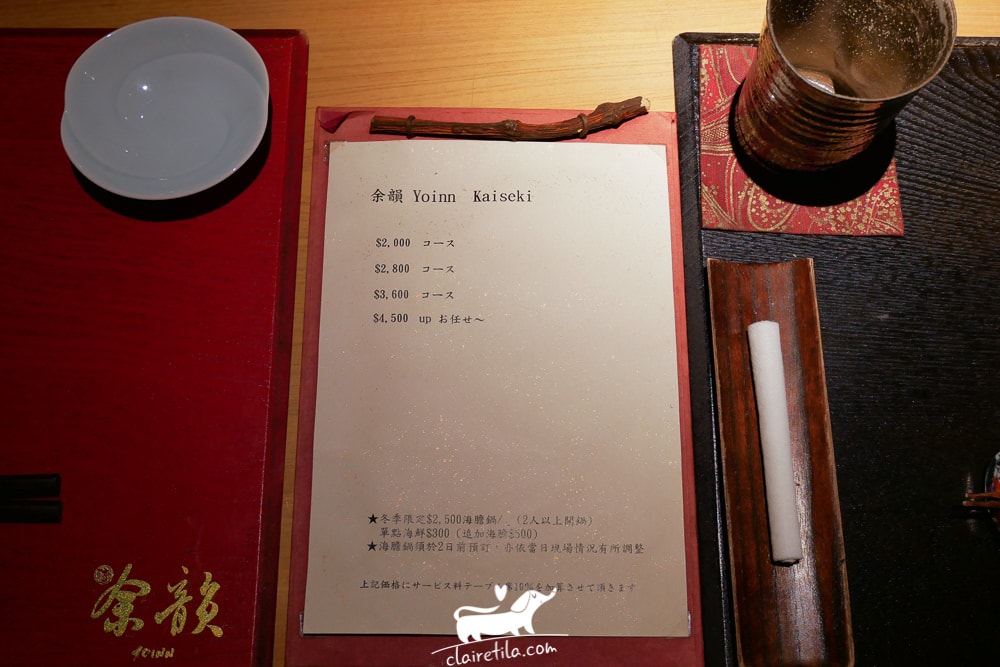 余韻 Yoinn Kaiseki
$2,000 コース
$2,800 コース
$3,600 コース
$4,500 up お任せ～
★冬季限定$2,500海膽鍋/ (2人以上開鍋)
單點海鮮$300 (追加海膽$500)
★海膽鍋須於2日前預訂，亦依當日現場情況有所調整
上記価格にサービス料テーブル 10%を加算させて頂きます
余韻
YOINN
clairetila.com